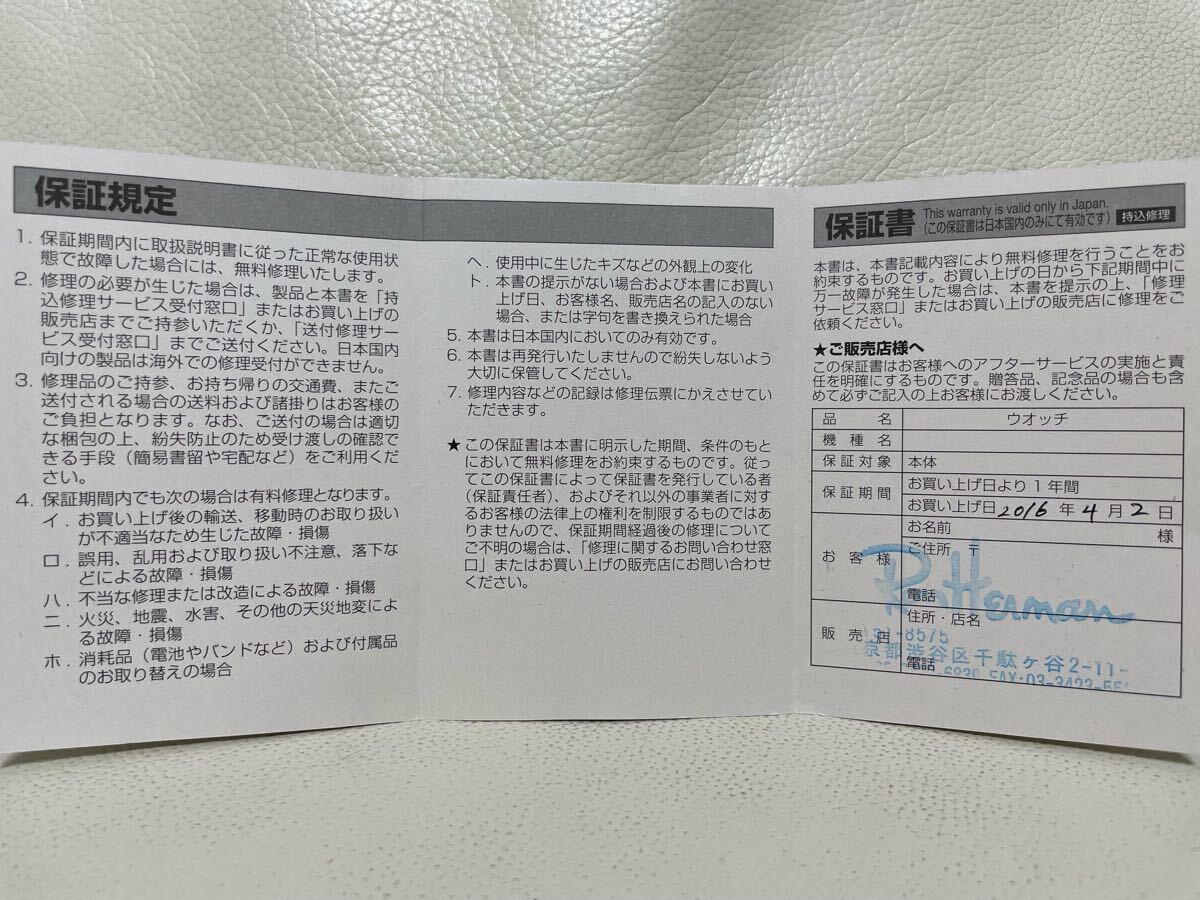 保証規定
1. 保証期間内に取扱説明書に従った正常な使用状
態で故障した場合には、無料修理いたします。
2. 修理の必要が生じた場合は、製品と本書を「持
込修理サービス受付窓口」またはお買い上げの
販売店までご持参いただくか、「送付修理サー
ビス受付窓口」までご送付ください。日本国内
向けの製品は海外での修理受付ができません。
3. 修理品のご持参、お持ち帰りの交通費、またご
送付される場合の送料および諸掛りはお客様の
ご負担となります。なお、ご送付の場合は適切
な梱包の上、紛失防止のため受け渡しの確認で
きる手段（簡易書留や宅配など）をご利用くだ
さい。
4. 保証期間内でも次の場合は有料修理となります。
イ. お買い上げ後の輸送、移動時のお取り扱い
が不適当なため生じた故障・損傷
ロ. 誤用、乱用および取り扱い不注意、落下な
どによる故障・損傷
ハ. 不当な修理または改造による故障・損傷
ニ. 火災、地震、水害、その他の天災地変によ
る故障・損傷
ホ. 消耗品（電池やバンドなど）および付属品
のお取り替えの場合
ヘ. 使用中に生じたキズなどの外観上の変化
ト. 本書の提示がない場合および本書にお買い
上げ日、お客様名、販売店名の記入のない
場合、または字句を書き換えられた場合
5. 本書は日本国内においてのみ有効です。
6. 本書は再発行いたしませんので紛失しないよう
大切に保管してください。
7. 修理内容などの記録は修理伝票にかえさせてい
ただきます。
★ この保証書は本書に明示した期間、条件のもと
において無料修理をお約束するものです。従っ
てこの保証書によって保証書を発行している者
（保証責任者）、およびそれ以外の事業者に対す
るお客様の法律上の権利を制限するものではあ
りませんので、保証期間経過後の修理について
ご不明の場合は、「修理に関するお問い合わせ窓
口」またはお買い上げの販売店にお問い合わせ
ください。
保証書 This warranty is valid only in Japan.
（この保証書は日本国内のみにて有効です） 持込修理
本書は、本書記載内容により無料修理を行うことをお
約束するものです。お買い上げの日から下記期間中に
万一故障が発生した場合は、本書を提示の上、「修理
サービス窓口」またはお買い上げの販売店に修理をご
依頼ください。
★ご販売店様へ
この保証書はお客様へのアフターサービスの実施と責
任を明確にするものです。贈答品、記念品の場合も含
めて必ずご記入の上お客様にお渡しください。
品名 ウオッチ
機種名
保証対象 本体
保証期間 お買い上げ日より1年間
お買い上げ日 2016 年 4 月 2 日
お客様 お名前 様
ご住所 〒
Ron Herman
電話
販売店 住所・店名
51-8575
京都渋谷区千駄ヶ谷2-11-
電話
-6839 FAX:03-3423-